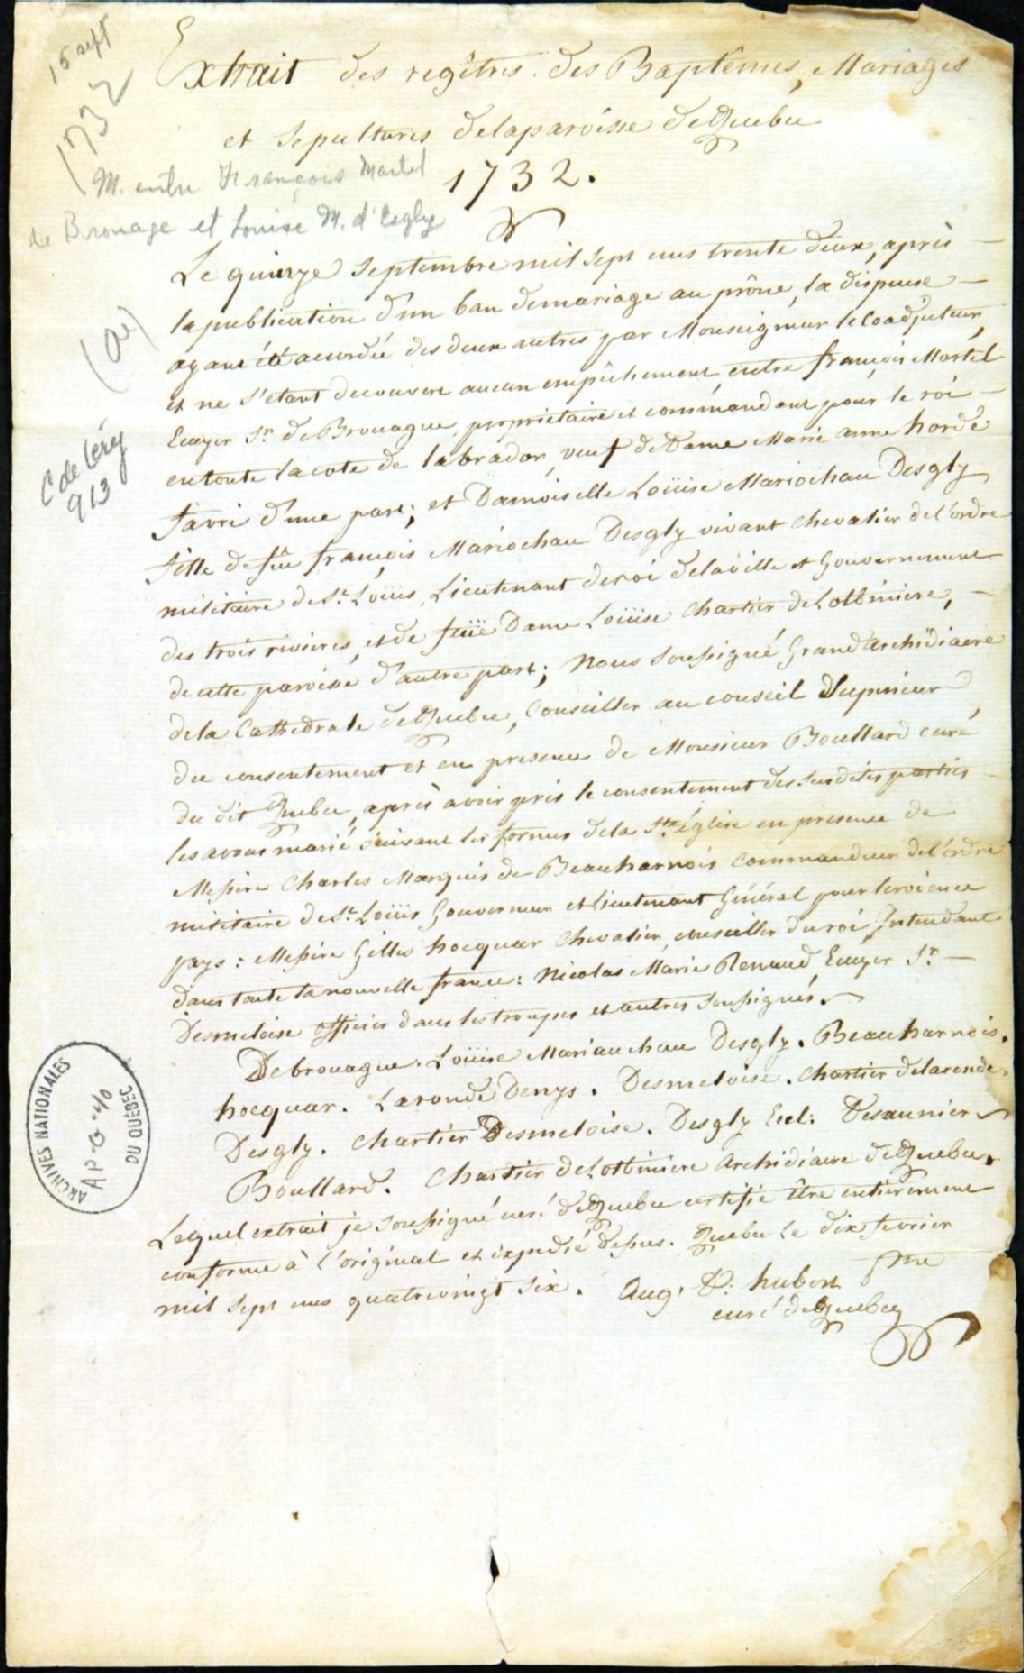 15 sept
1732
Extrait des regîtres des Baptêmes, Mariages
et Sepultures delaparoisse deQuebec
1732.
M. entre François Martel
de Brouage et Louise M. d'Esgly
(Or)
C de Léry
913
Le quinze Septembre mil sept cens trente deux, après —
la publication d'un ban demariage au prône, la dispense —
ayant été accordée des deux autres par Monseigneur le Coadjuteur,
et ne s'etant decouvert aucun empêchement, entre françois Martel
Ecuyer Sr. de Brouague, proprietaire et commandant pour le roi —
en toute la cote de labrador, veuf de Dame Marie anne hordé
favri d'une part; et Damoiselle Loüise Mariochau Desgly
fille de feû françois Mariochau Desgly vivant chevalier de l'ordre
militaire de St. Loüis, Lieutenant deroi delaville et Gouvernement
des trois rivieres, et de feüe Dame Loüise Chartier deLotbiniere, —
de cette paroisse d'autre part; Nous Soussigné Grand Archidiacre
dela Cathedrale deQuebec, Conseiller au conseil Superieur
du consentement et en presence de Monsieur Boullard curé
du dit Quebec, après avoir pris le consentement des susdites parties —
les avons marié suivant les formes dela Ste. église en presence de
Messire Charles Marquis de Beauharnois Commandeur del'ordre
militaire de St. Loüis Gouverneur et lieutenant Général pour leroi en ce
pays: Messire Gilles hocquar Chevalier, conseiller du roi Intendant
dans toute la nouvelle france: Nicolas Marie Renaud, Ecuyer Sr. —
Desmeloise officier dans les troupes et autres soussignés.
Debrouague. Loüise Mariauchau Desgly. Beauharnois.
hocquar. Laronde Denys. Desmeloise. Chartier delarende.
Desgly. Chartier Desmeloise. Desgly Eccl. Desaunier
Boullard. Chartier deLotbiniere Archidiacre deQuebec.
Lequel extrait je soussigné curé deQuebec certifie être entierement
conforme à l'original et expedié dessus. Quebec le dix fevrier
mil sept cens quatrevingt six. Aug. D: hubert ptre
curé deQuebec
ARCHIVES NATIONALES
DU QUÉBEC
AP-G-40